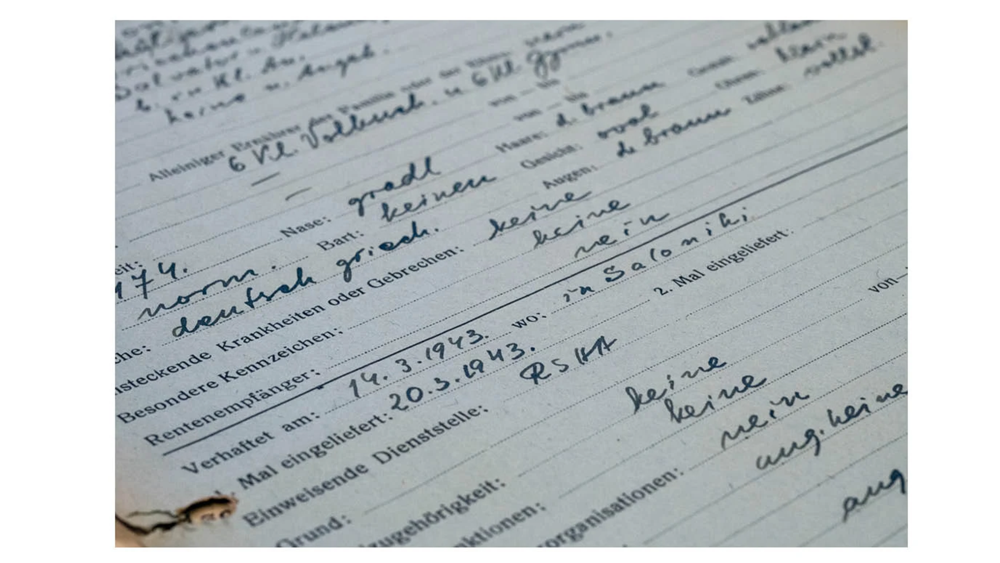 b. zu Kl. An.
keine n. Angeh.
Alleiniger Ernährer der Familie oder der Eltern:
6 Kl. Volksch. u 6 Kl. Gymn.
von — bis
von — bis
Haare: d. braun
Nase: gradl Gesicht: oval Ohren: klein
Bart: keinen Augen: d. braun Zähne: vollst.
174.
norm.
che: deutsch griech.
nsteckende Krankheiten oder Gebrechen: keine
Besondere Kennzeichen: keine
Rentenempfänger: nein
Verhaftet am: 14.3.1943. wo: in Saloniki
Mal eingeliefert: 20.3.1943. 2. Mal eingeliefert:
Einweisende Dienststelle: RSHA von-
Grund:
zugehörigkeit: keine
nktionen: keine
organisationen: nein
ang. keine
ang